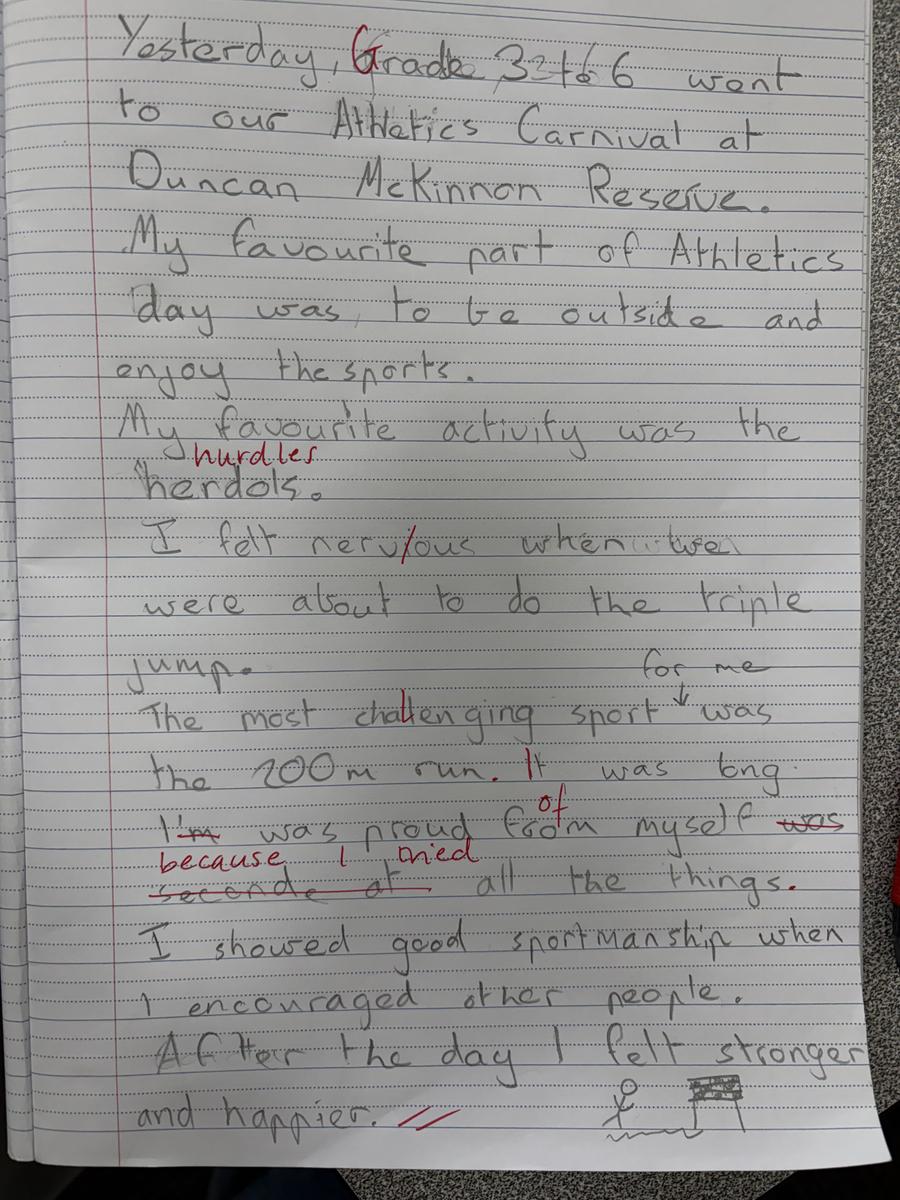 Yesterday, Grade 3 to 6 went
to our Athletics Carnival at
Duncan McKinnon Reserve.
My favourite part of Athletics
day was to be outside and
enjoy the sports.
My favourite activity was the
hurdles
herdols.
I felt nerv/ous when we
were about to do the triple
jump.
for me
The most challenging sport ↓ was
the 200m run. It was long
of
I'm was proud from myself was
because I tried
seconde at all the things.
I showed good sportmanship when
I encouraged other people.
After the day I felt stronger
and happier. //